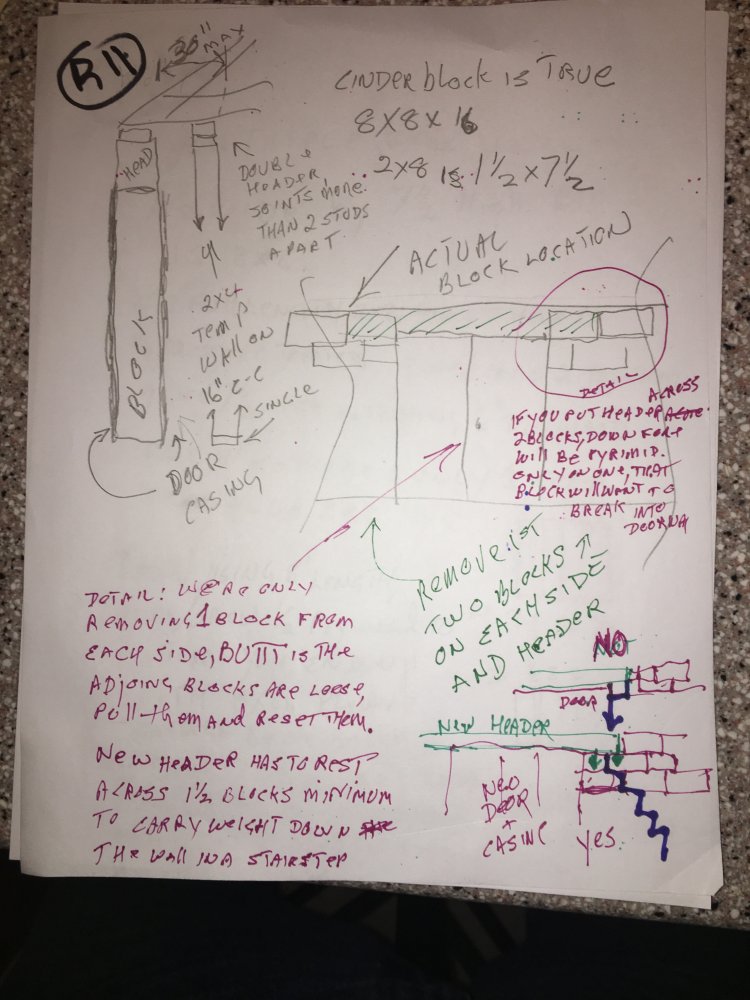 R14
20" MAX
CINDER block is TRUE
8X8X16
2x8 is 1 1/2 x 7 1/2
HEAD
DOUBLE
HEADER,
JOINTS MORE
THAN 2 STUDS
APART
ACTUAL
BLOCK LOCATION
BLOCK
2x4
TEMP
WALL ON
16" C-C
SINGLE
DOOR
CASING
DETAIL
IF YOU PUT HEADER ACROSS
2 BLOCKS, DOWN FORE
WILL BE PYRIMID.
ONLY ON ONE, THAT
BLOCK WILL WANT TO
BREAK INTO
DOOR
REMOVE 1ST
TWO BLOCKS
ON EACH SIDE
AND HEADER
DETAIL: WE ARE ONLY
REMOVING 1 BLOCK FROM
EACH SIDE, BUTTT IS THE
ADJOING BLOCKS ARE LOOSE,
PULL THEM AND RESET THEM.
NEW HEADER HAS TO REST
ACROSS 1 1/2 BLOCKS MINIMUM
TO CARRY WEIGHT DOWN
THE WALL IN A STAIRSTEP
NO
DOOR
NEW HEADER
NEW
DOOR
+
CASING
YES